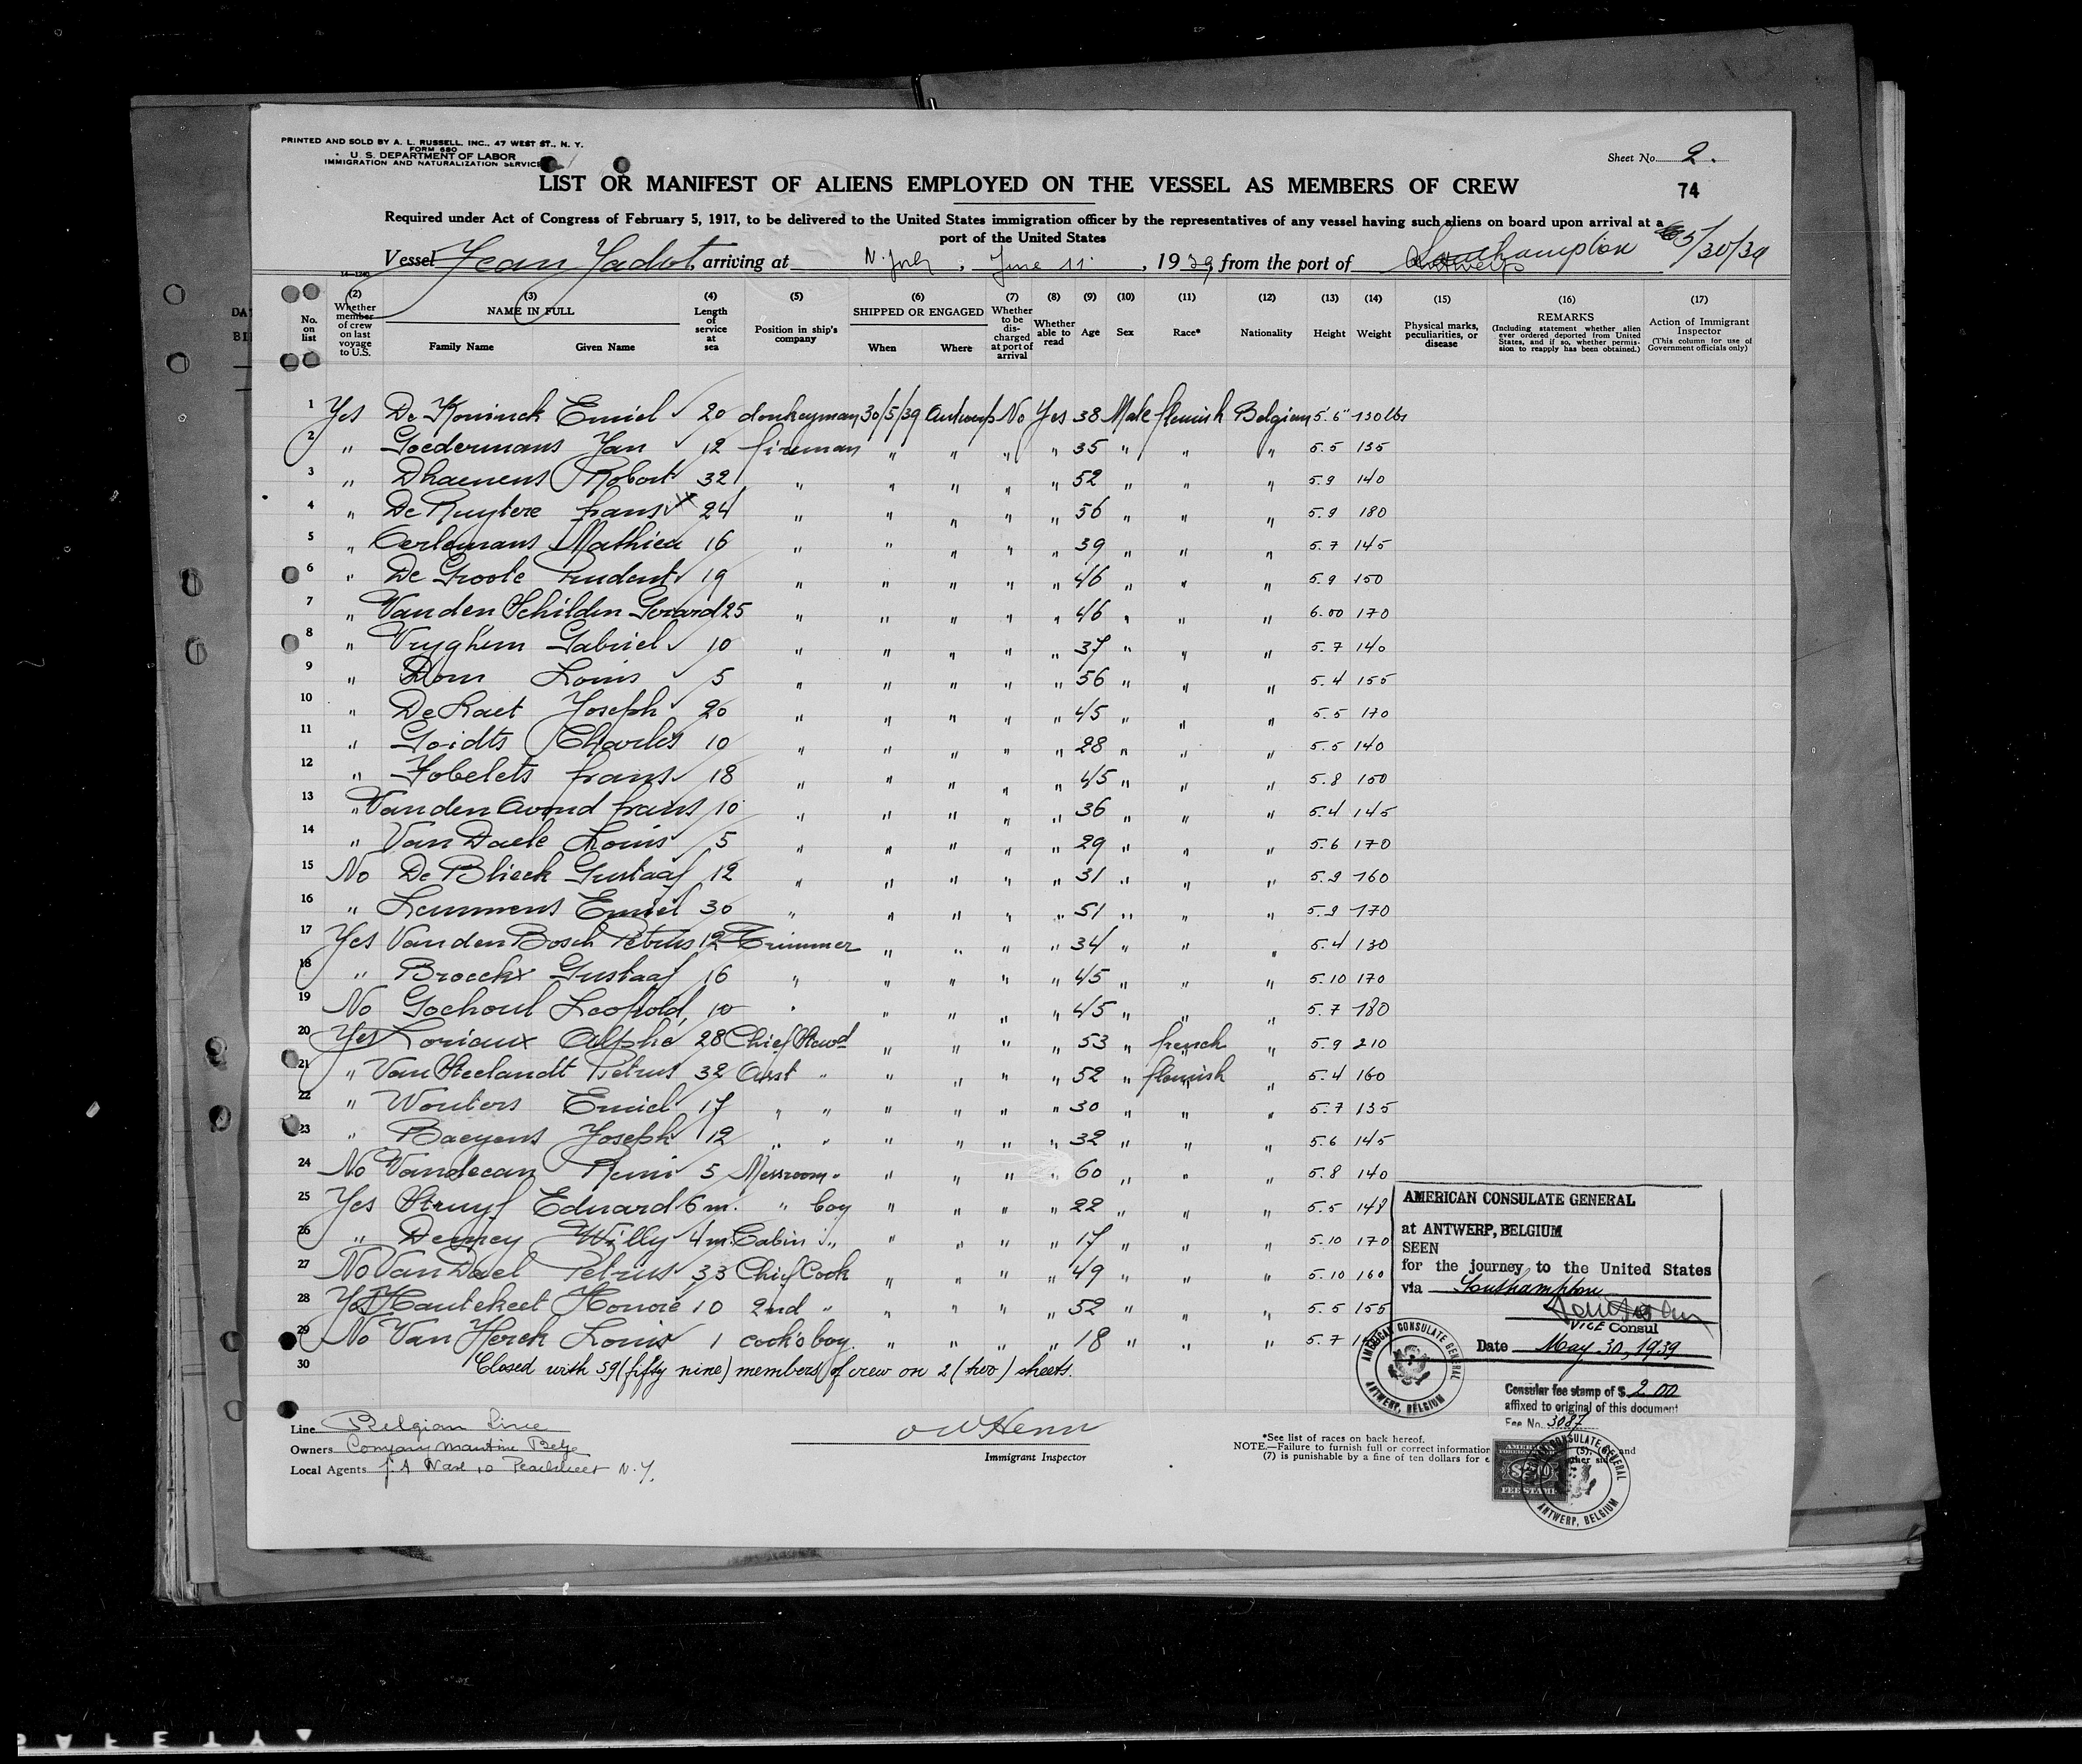 PRINTED AND SOLD BY A. L. RUSSELL, INC., 47 WEST ST., N. Y.
FORM 680
U. S. DEPARTMENT OF LABOR
IMMIGRATION AND NATURALIZATION SERVICE
Sheet No. 2.
LIST OR MANIFEST OF ALIENS EMPLOYED ON THE VESSEL AS MEMBERS OF CREW
74
Required under Act of Congress of February 5, 1917, to be delivered to the United States immigration officer by the representatives of any vessel having such aliens on board upon arrival at a
port of the United States
Vessel Jean Jadot, arriving at N. York, June 11, 1939, from the port of Southampton 5/30/39
(2) (3) (4) (5) (6) (7) (8) (9) (10) (11) (12) (13) (14) (15) (16) (17)
No. on list
Whether member of crew on last voyage to U.S.
NAME IN FULL
Family Name Given Name
Length of service at sea
Position in ship's company
SHIPPED OR ENGAGED
When Where
Whether to be discharged at port of arrival
Whether able to read
Age
Sex
Race*
Nationality
Height
Weight
Physical marks, peculiarities, or disease
REMARKS
(Including statement whether alien ever ordered deported from United States, and if so, whether permission to reapply has been obtained.)
Action of Immigrant Inspector
(This column for use of Government officials only)
1 Yes De Koninck Emiel 20 donkeyman 30/5/39 Antwerp No Yes 38 Male flemish Belgian 5'.6" 130 lbs
2 " Goedermans Jan 12 fireman " " " " 35 " " " 5.5 135
3 " Dhaenens Robert 32 " " " " " 52 " " " 5.9 140
4 " De Ruytere frans 24 " " " " " 56 " " " 5.9 180
5 " Oerlemans Mathieu 16 " " " " " 39 " " " 5.7 145
6 " De Groote Prudent 19 " " " " " 46 " " " 5.9 150
7 " Van den Schilden Gerard 25 " " " " " 46 " " " 6.00 170
8 " Vryghem Gabriel 10 " " " " " 37 " " " 5.7 140
9 " Dom Louis 5 " " " " " 56 " " " 5.4 155
10 " De Raet Joseph 20 " " " " " 45 " " " 5.5 170
11 " Goidts Charles 10 " " " " " 28 " " " 5.5 140
12 " Gobelets frans 18 " " " " " 45 " " " 5.8 150
13 " Van den Avond frans 10 " " " " " 36 " " " 5.4 145
14 " Van Daele Louis 5 " " " " " 29 " " " 5.6 170
15 No De Blieck Gustaaf 12 " " " " " 31 " " " 5.9 160
16 " Lemmens Emiel 30 " " " " " 51 " " " 5.9 170
17 Yes Van den Bosch Petrus 12 Trimmer " " " " 34 " " " 5.4 130
18 " Broeckx Gustaaf 16 " " " " " 45 " " " 5.10 170
19 No Gochoul Leopold 10 " " " " " 45 " " " 5.7 180
20 Yes Loriaux Alphe 28 Chief Stewd " " " " 53 " french " 5.9 210
21 " Van Steelandt Petrus 32 Asst " " " " " 52 " flemish " 5.4 160
22 " Wouters Emiel 17 " " " " " " 30 " " " 5.7 135
23 " Baeyens Joseph 12 " " " " " " 32 " " " 5.6 145
24 No Vandecan Remi 5 Messroom " " " " " 60 " " " 5.8 140
25 Yes Struyf Eduard 6 m. " boy " " " " 22 " " " 5.5 148
26 " Demey Willy 4 m. Cabin " " " " " 17 " " " 5.10 170
27 No Van Dael Petrus 33 Chief Cook " " " " 49 " " " 5.10 160
28 Yes Hautekeet Honoré 10 2nd " " " " " 52 " " " 5.5 155
29 No Van Herck Louis 1 cook's boy " " " " 18 " " " 5.7
30 Closed with 59 (fifty nine) members of crew on 2 (two) sheets.
AMERICAN CONSULATE GENERAL
at ANTWERP, BELGIUM
SEEN
for the journey to the United States
via Southampton
VICE Consul
Date May 30, 1939
AMERICAN CONSULATE GENERAL ANTWERP, BELGIUM
Consular fee stamp of $ 2.00
affixed to original of this document
Fee No. 3087
Line Belgian Line
Owners Company Maritime Belge
Local Agents Pearlstreet N.Y.
Immigrant Inspector
*See list of races on back hereof.
NOTE.—Failure to furnish full or correct information (5), (6), and
(7) is punishable by a fine of ten dollars for other side
FEE STAMP
CONSULATE GENERAL
ANTWERP, BELGIUM
SAFETY